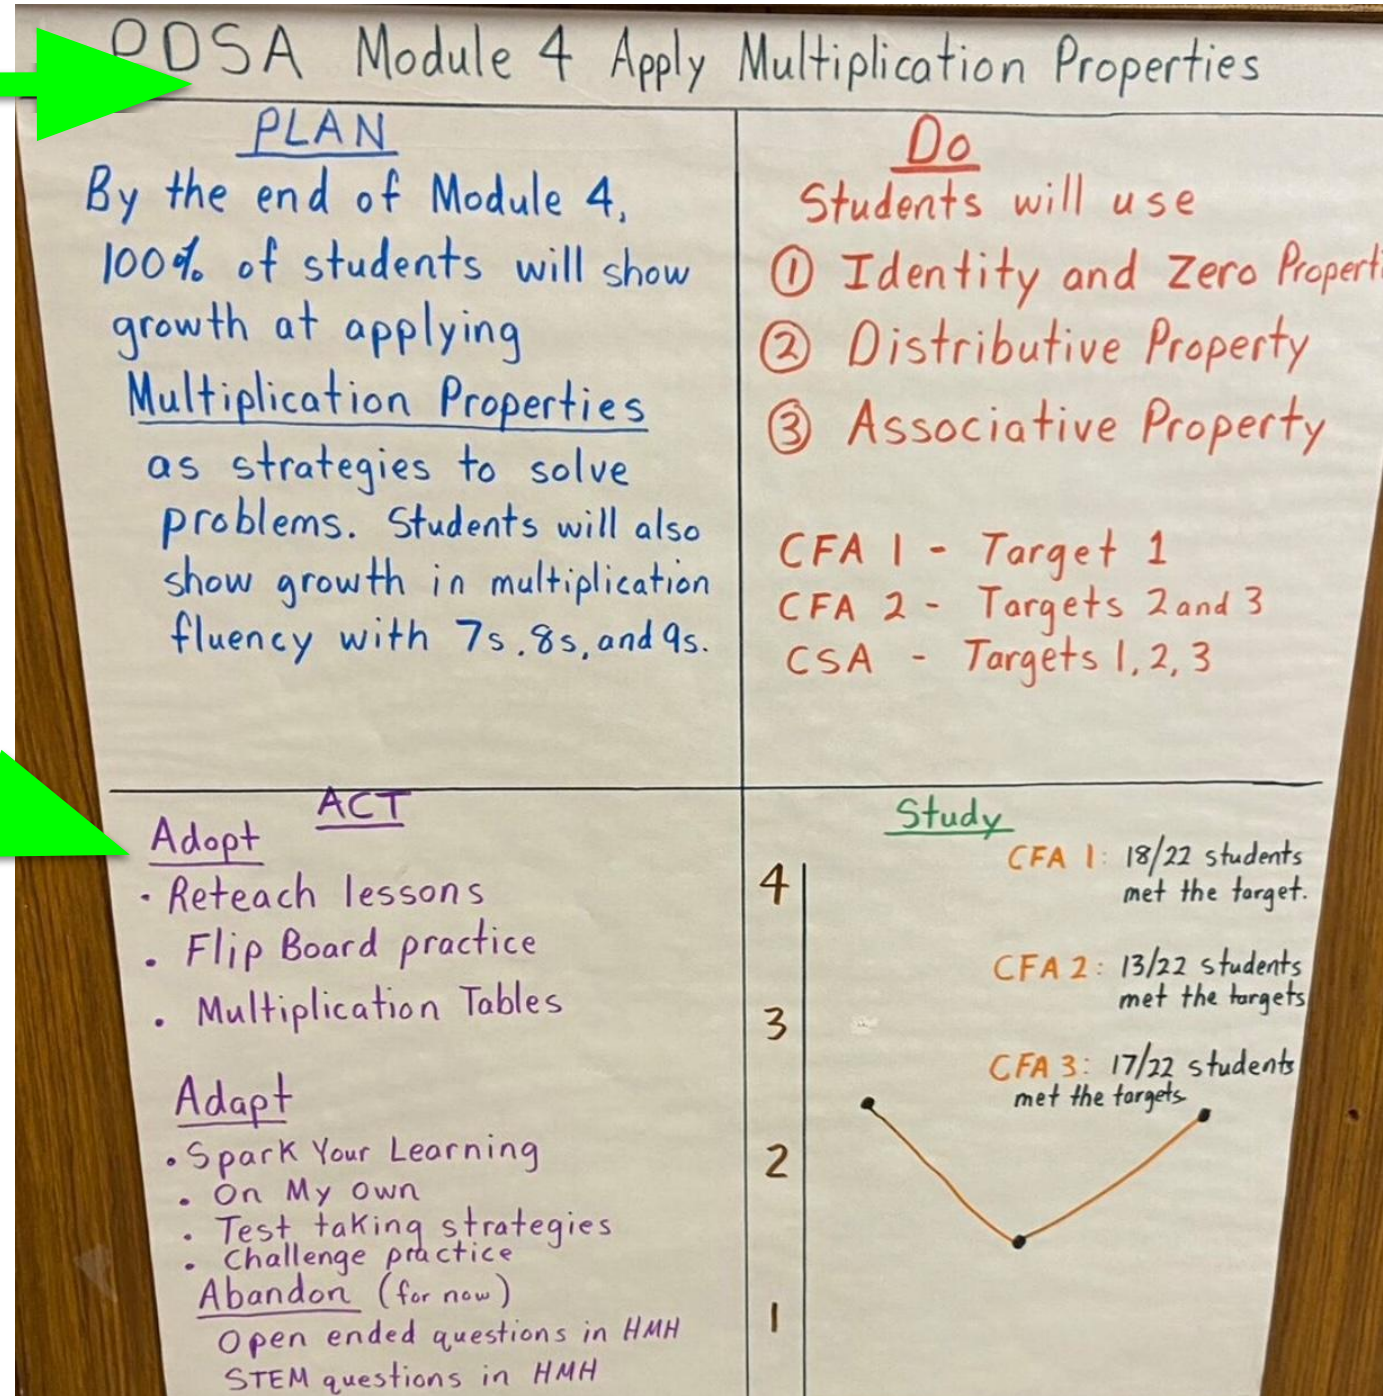 PDSA Module 4 Apply Multiplication Properties
PLAN
By the end of Module 4,
100% of students will show
growth at applying
Multiplication Properties
as strategies to solve
problems. Students will also
show growth in multiplication
fluency with 7s, 8s, and 9s.
Do
Students will use
① Identity and Zero Properti
② Distributive Property
③ Associative Property
CFA 1 - Target 1
CFA 2 - Targets 2 and 3
CSA - Targets 1, 2, 3
ACT
Adopt
· Reteach lessons
· Flip Board practice
· Multiplication Tables
Adapt
· Spark Your Learning
· On My Own
· Test taking strategies
· Challenge practice
Abandon (for now)
Open ended questions in HMH
STEM questions in HMH
Study
CFA 1: 18/22 students
met the target.
CFA 2: 13/22 students
met the targets
CFA 3: 17/22 students
met the targets
4
3
2
1